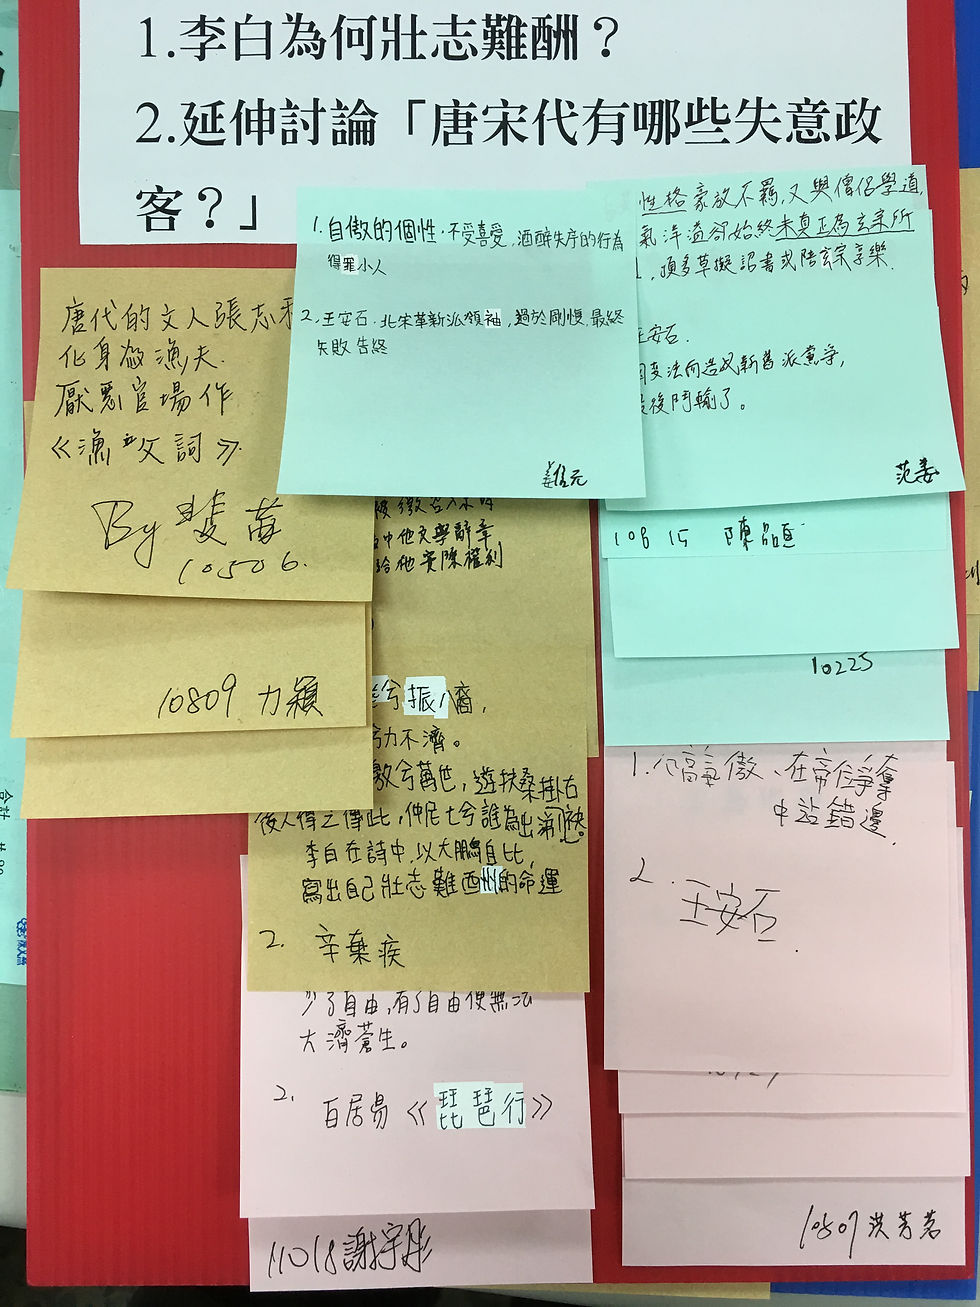 1.李白為何壯志難酬？
2.延伸討論「唐宋代有哪些失意政
客？」
唐代的文人張志
化身為漁夫.
厭惡官場作
《漁父詞》.
By
10506.
10809 力穎
1.自傲的個性.不受喜愛,酒醉失序的行為
得罪小人
2.王安石.北宋革新派領袖,過於剛愎.最終
失敗告終
姜信元
性格豪放不羈,又與僧侶學道,
氣洋溢卻始終未真正為玄宗所
,頂多草擬詔書或陪玄宗享樂.
王安石.
變法而造成新舊派黨爭,
最後鬥輸了。
范姜
108 15 陳
10225
中他文學辭章
給他實際權利
兮振八裔,
兮力不濟。
兮萬世,遊扶桑掛石
後人得之傳此,仲尼亡兮誰為出涕
李白在詩中,以大鵬自比,
寫出自己壯志難酬的命運
2. 辛棄疾
少了自由,有了自由便無法
大濟蒼生。
2. 白居易《琵琶行》
11018謝宇彤
1. 傲、在帝位爭奪
中站錯邊.
2. 王安石.
10507 洪芳茗